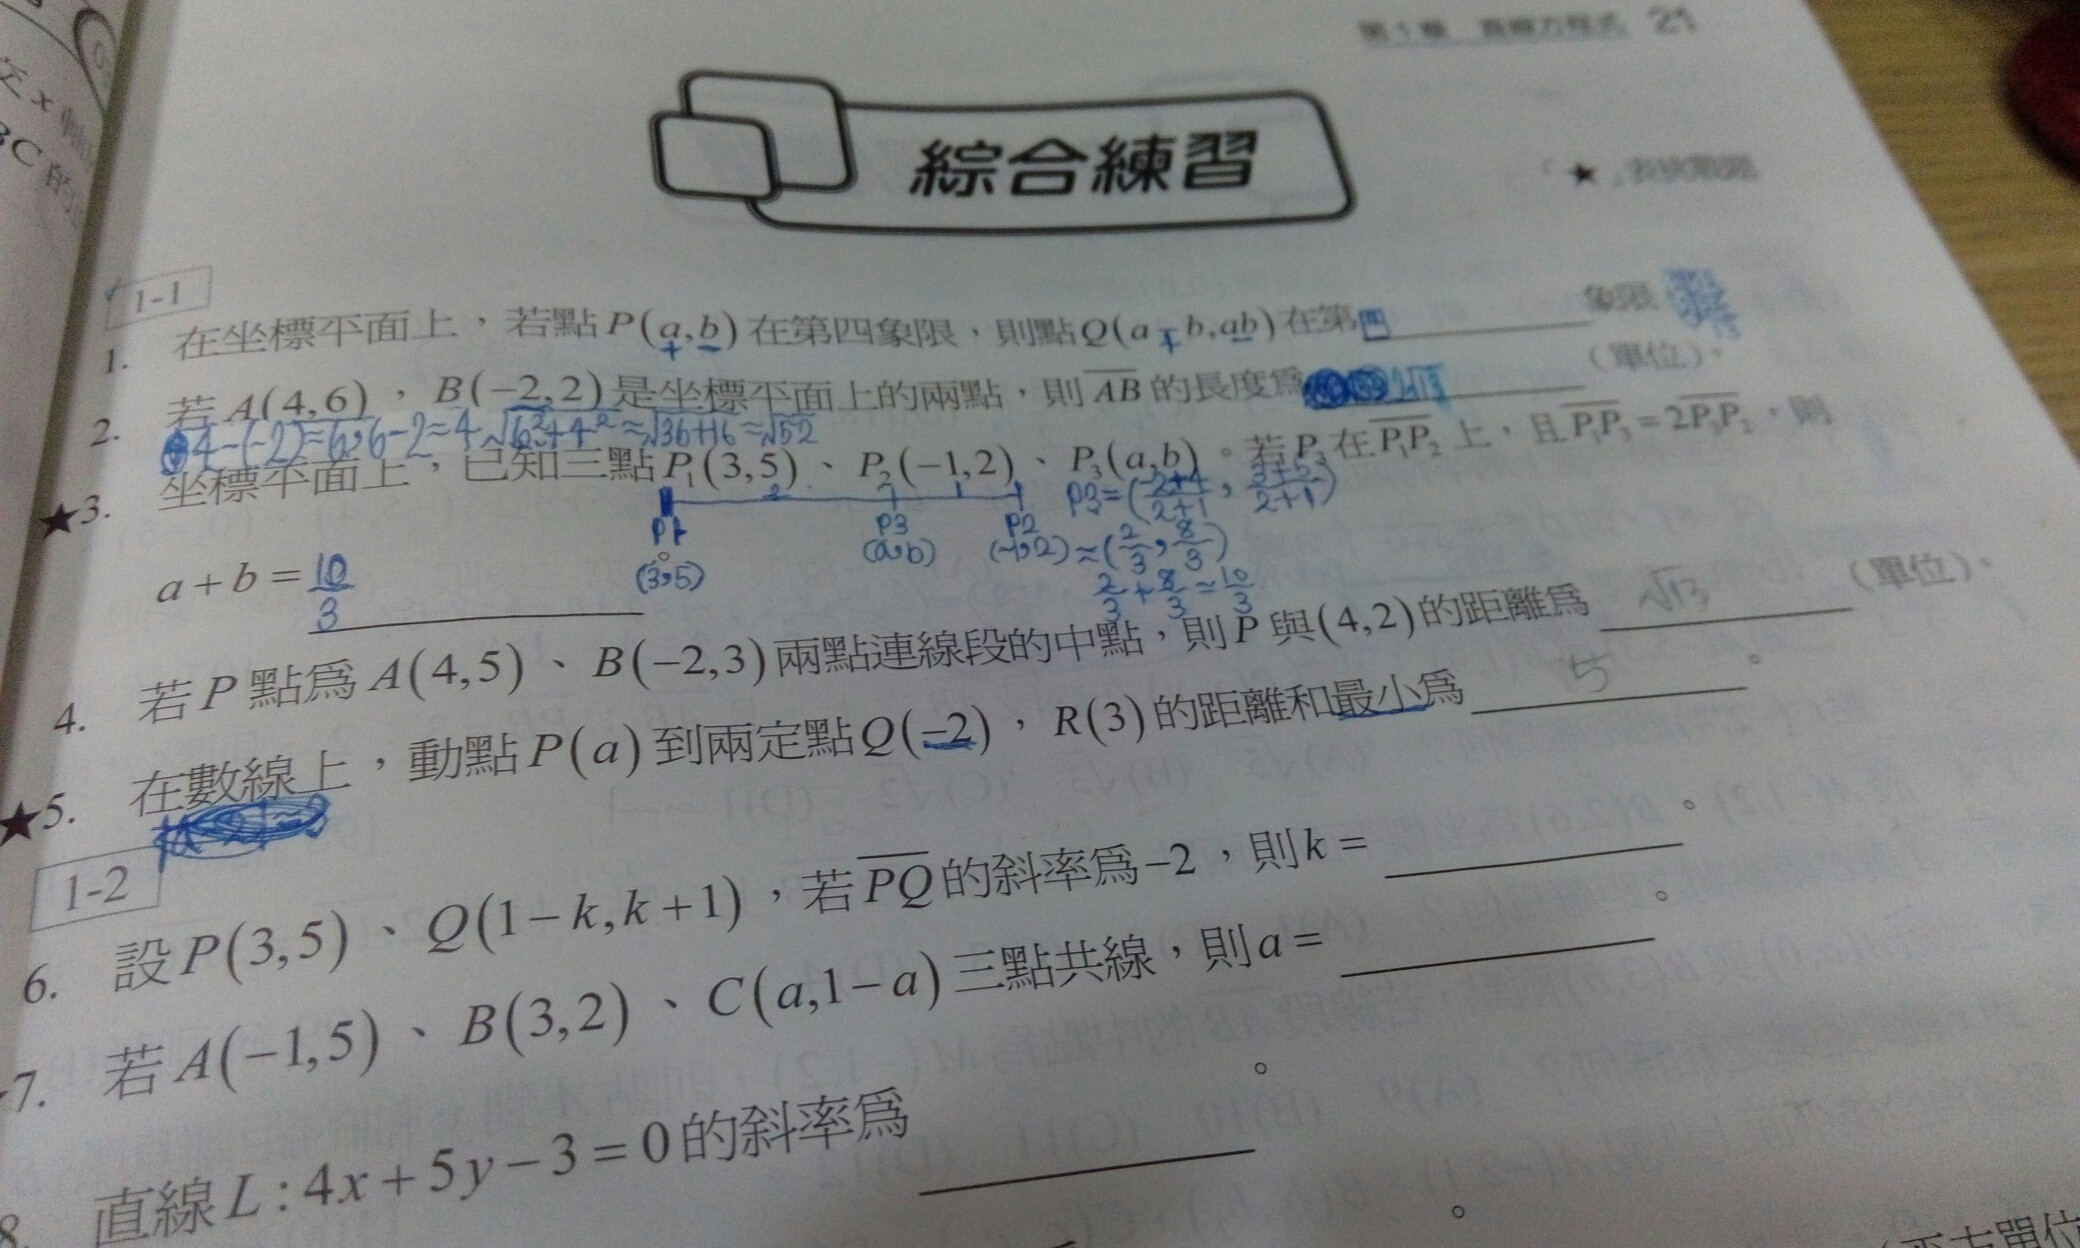 第1章 直線方程式 21
綜合練習
「★」表挑戰題
1-1
1. 在坐標平面上，若點P(a,b)在第四象限，則點Q(a-b,ab)在第四象限
+ - +
2. 若A(4,6)，B(-2,2)是坐標平面上的兩點，則AB的長度為2√13（單位）。
4-(-2)=6,6-2=4 √6²+4²=√36+16=√52
★3. 坐標平面上，已知三點P₁(3,5)、P₂(-1,2)、P₃(a,b)。若P₃在P₁P₂上，且P₁P₃=2P₃P₂，則
2 1 P3=(-2+4/2+1, 3+5/2+1)
P1 P3 P2
(3,5) (a,b) (-1,2) =(2/3,8/3)
a+b=10/3
2/3+8/3=10/3
4. 若P點為A(4,5)、B(-2,3)兩點連線段的中點，則P與(4,2)的距離為√13（單位）。
★5. 在數線上，動點P(a)到兩定點Q(-2)，R(3)的距離和最小為5。
1-2
6. 設P(3,5)、Q(1-k,k+1)，若PQ的斜率為-2，則k=。
7. 若A(-1,5)、B(3,2)、C(a,1-a)三點共線，則a=。
8. 直線L:4x+5y-3=0的斜率為。
。
（平方單位